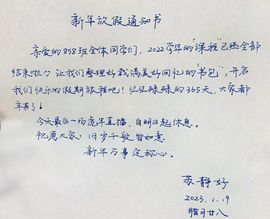 新年放假通知书
亲爱的858班全体同学们,2022学年的“课程”已经全部
结束啦!让我们整理好载满美好回忆的“书包”,开启
我们快乐的假期旅程吧!忙忙碌碌的365天,大家都
辛苦了!
今天最后一场虎年直播,自明日起休息。
祝愿大家:旧岁千般皆如意
新年万事定称心。
苏静好
2023.1.19
腊月廿八